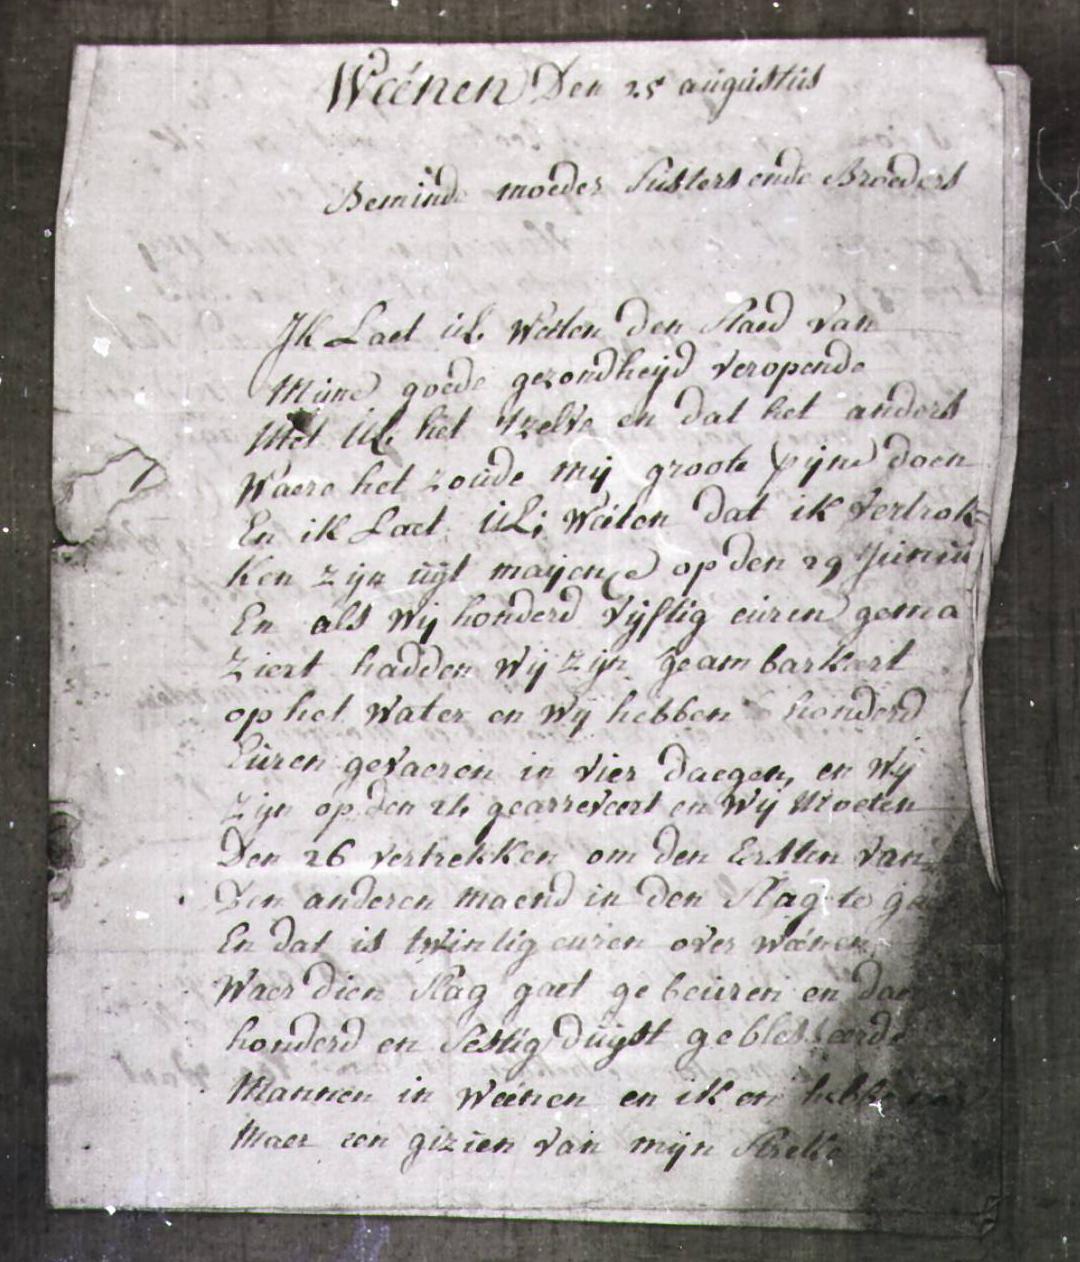 Weénen Den 25 augustus
Beminde moeder susters ende Broeders
Ik Laet ul. Weeten den staed van
Mijne goede gezondheijd veropende
Met UL het tzelve en dat het anders
Waere het zoude mij groote pijne doen
En ik Laet UL; Weeten dat ik vertrok=
ken zijn uijt maijence op den 29 Junius
En als wij honderd vijftig euren gema
ziert hadden wij zijn geambarkeert
op het water en wij hebben honderd
Euren gevaeren in vier daegen, en wij
zijn op den 24 gearreveert en wij Moeten
Den 26 vertrekken om den Ersten van
Den anderen maend in den slag te
En dat is twintig euren over weénen
Waer dien slag gaet gebeuren en
honderd en sestig duijst geblesseerde
Mannen in weénen en ik en hebbe
Maer een gizien van mijn streke